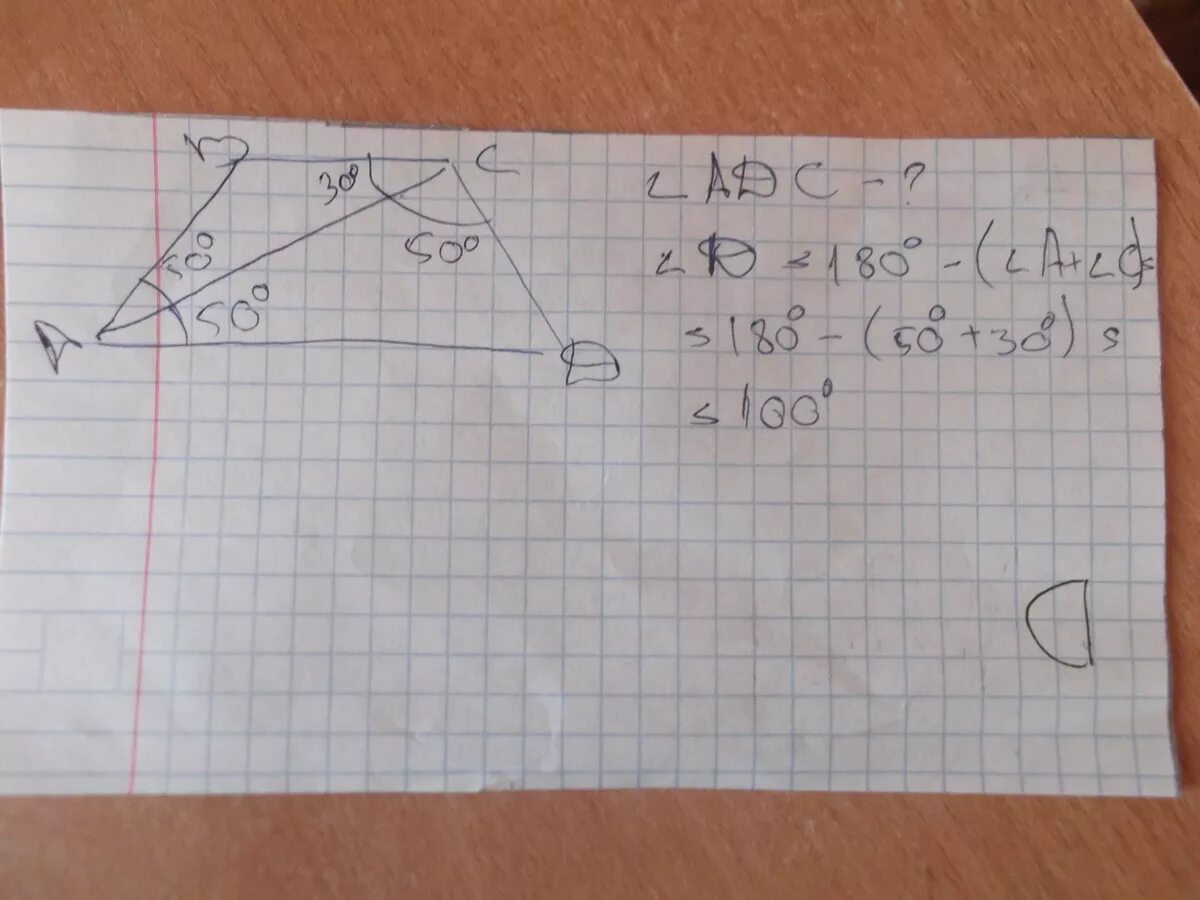 B
C
30°
50°
50°
50°
A
D
∠ADC - ?
∠D = 180° - (∠A + ∠C) =
= 180° - (50° + 30°) =
= 100°
D